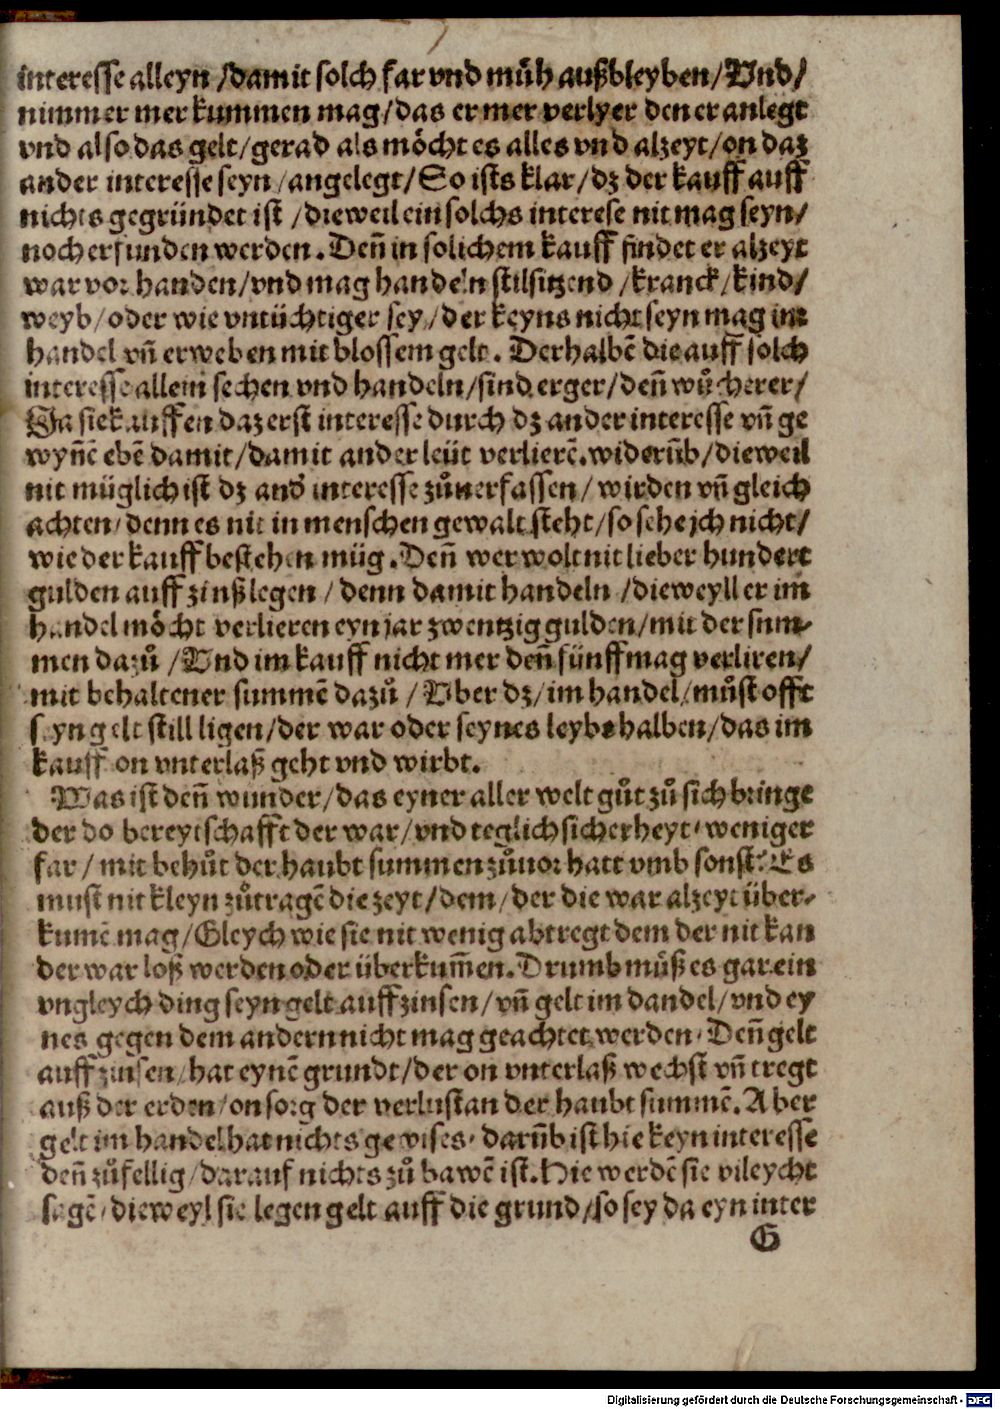 interesse alleyn /damit solch far vnd muͤh außbleyben/Vnd/
nimmer mer kummen mag/das er mer verlyer den er anlegt
vnd also das gelt/gerad als moͤcht es alles vnd alzeyt/on daz
ander interesse seyn/angelegt/So ists klar/dz der kauff auff
nichts gegründet ist /dieweil ein solchs interese nit mag seyn/
noch erfunden werden. Deñ in solichem kauff findet er alzeyt
war vor handen/vnd mag handeln stilsitzend /kranck/kind/
weyb/oder wie vntüchtiger sey/der keyns nicht seyn mag im
handel vñ erweben mit blossem gelt. Derhalbē die auff solch
interesse allein sechen vnd handeln/sind erger/deñ wuͤcherer/
Ja sie kauffen daz erst interesse durch dz ander interesse vñ ge
wyñē ebē damit/damit ander leüt verlierē.widerūb/dieweil
nit müglich ist dz anď interesse zůuerfassen/ wirden vñ gleich
achten/denn es nit in menschen gewalt steht/so sehe jch nicht/
wie der kauff bestehen müg. Deñ wer wolt nit lieber hundert
gulden auff zinß legen / denn damit handeln /dieweyll er im
handel moͤcht verlieren eyn jar zwentzig gulden/mit der sum-
men dazů /Vnd im kauff nicht mer deñ fünff mag verliren/
mit behaltener summē dazů / Vber dz/im handel/muͤst offt
seyn gelt still ligen/der war oder seynes leybs halben/das im
kauff on vnterlaß geht vnd wirbt.
Was ist deñ wunder/das eyner aller welt gůt zů sich bringe
der do bereytschafft der war/vnd teglich sicherheyt/weniger
far/ mit behůt der haubt summen zůuor hatt vmb sonst? Es
must nit kleyn zůtragē die zeyt/dem/der die war alzeyt über-
kumē mag/Gleych wie sie nit wenig abtregt dem der nit kan
der war loß werden oder überkum̃en. Drumb muͤß es gar ein
vngleych ding seyn gelt auff zinsen/vñ gelt im dandel/vnd ey
nes gegen dem andern nicht mag geachtet werden. Deñ gelt
auff zinsen/hat eynē grundt/der on vnterlaß wechst vñ tregt
auß der erden/on sorg der verlust an der haubt summē. Aber
gelt im handel hat nichts gewises. darūb ist hie keyn interesse
deñ zůfellig/darauf nichts zů bawē ist. Hie werdē sie vileycht
sagē/dieweyl sie legen gelt auff die grund/so sey da eyn inter
G
Digitalisierung gefördert durch die Deutsche Forschungsgemeinschaft - DFG